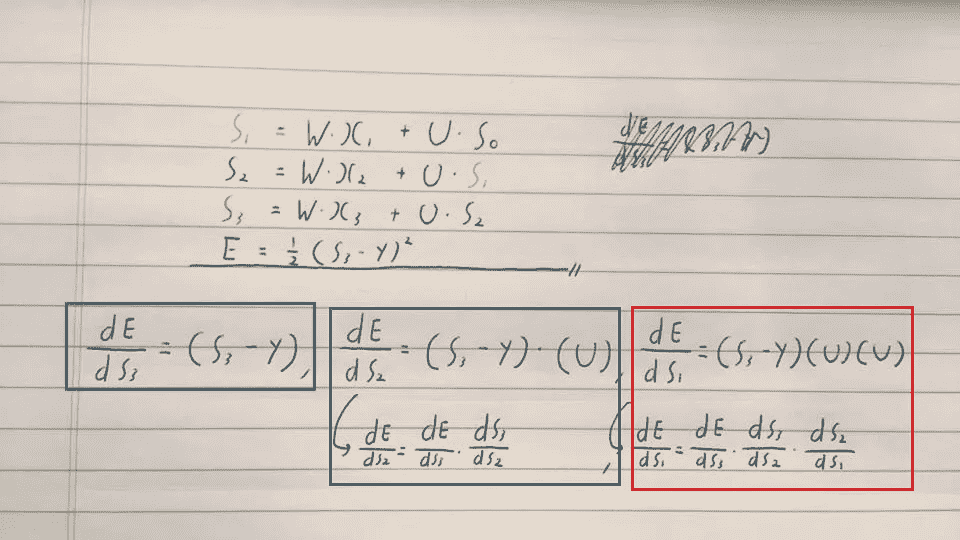 S₁ = W·X₁ + U·S₀
S₂ = W·X₂ + U·S₁
S₃ = W·X₃ + U·S₂
E = ½ (S₃ - Y)²
dE/dS₃ = (S₃ - Y),
dE/dS₂ = (S₃ - Y)·(U),
dE/dS₂ = dE/dS₃ · dS₃/dS₂,
dE/dS₁ = (S₃ - Y)(U)(U)
dE/dS₁ = dE/dS₃ · dS₃/dS₂ · dS₂/dS₁